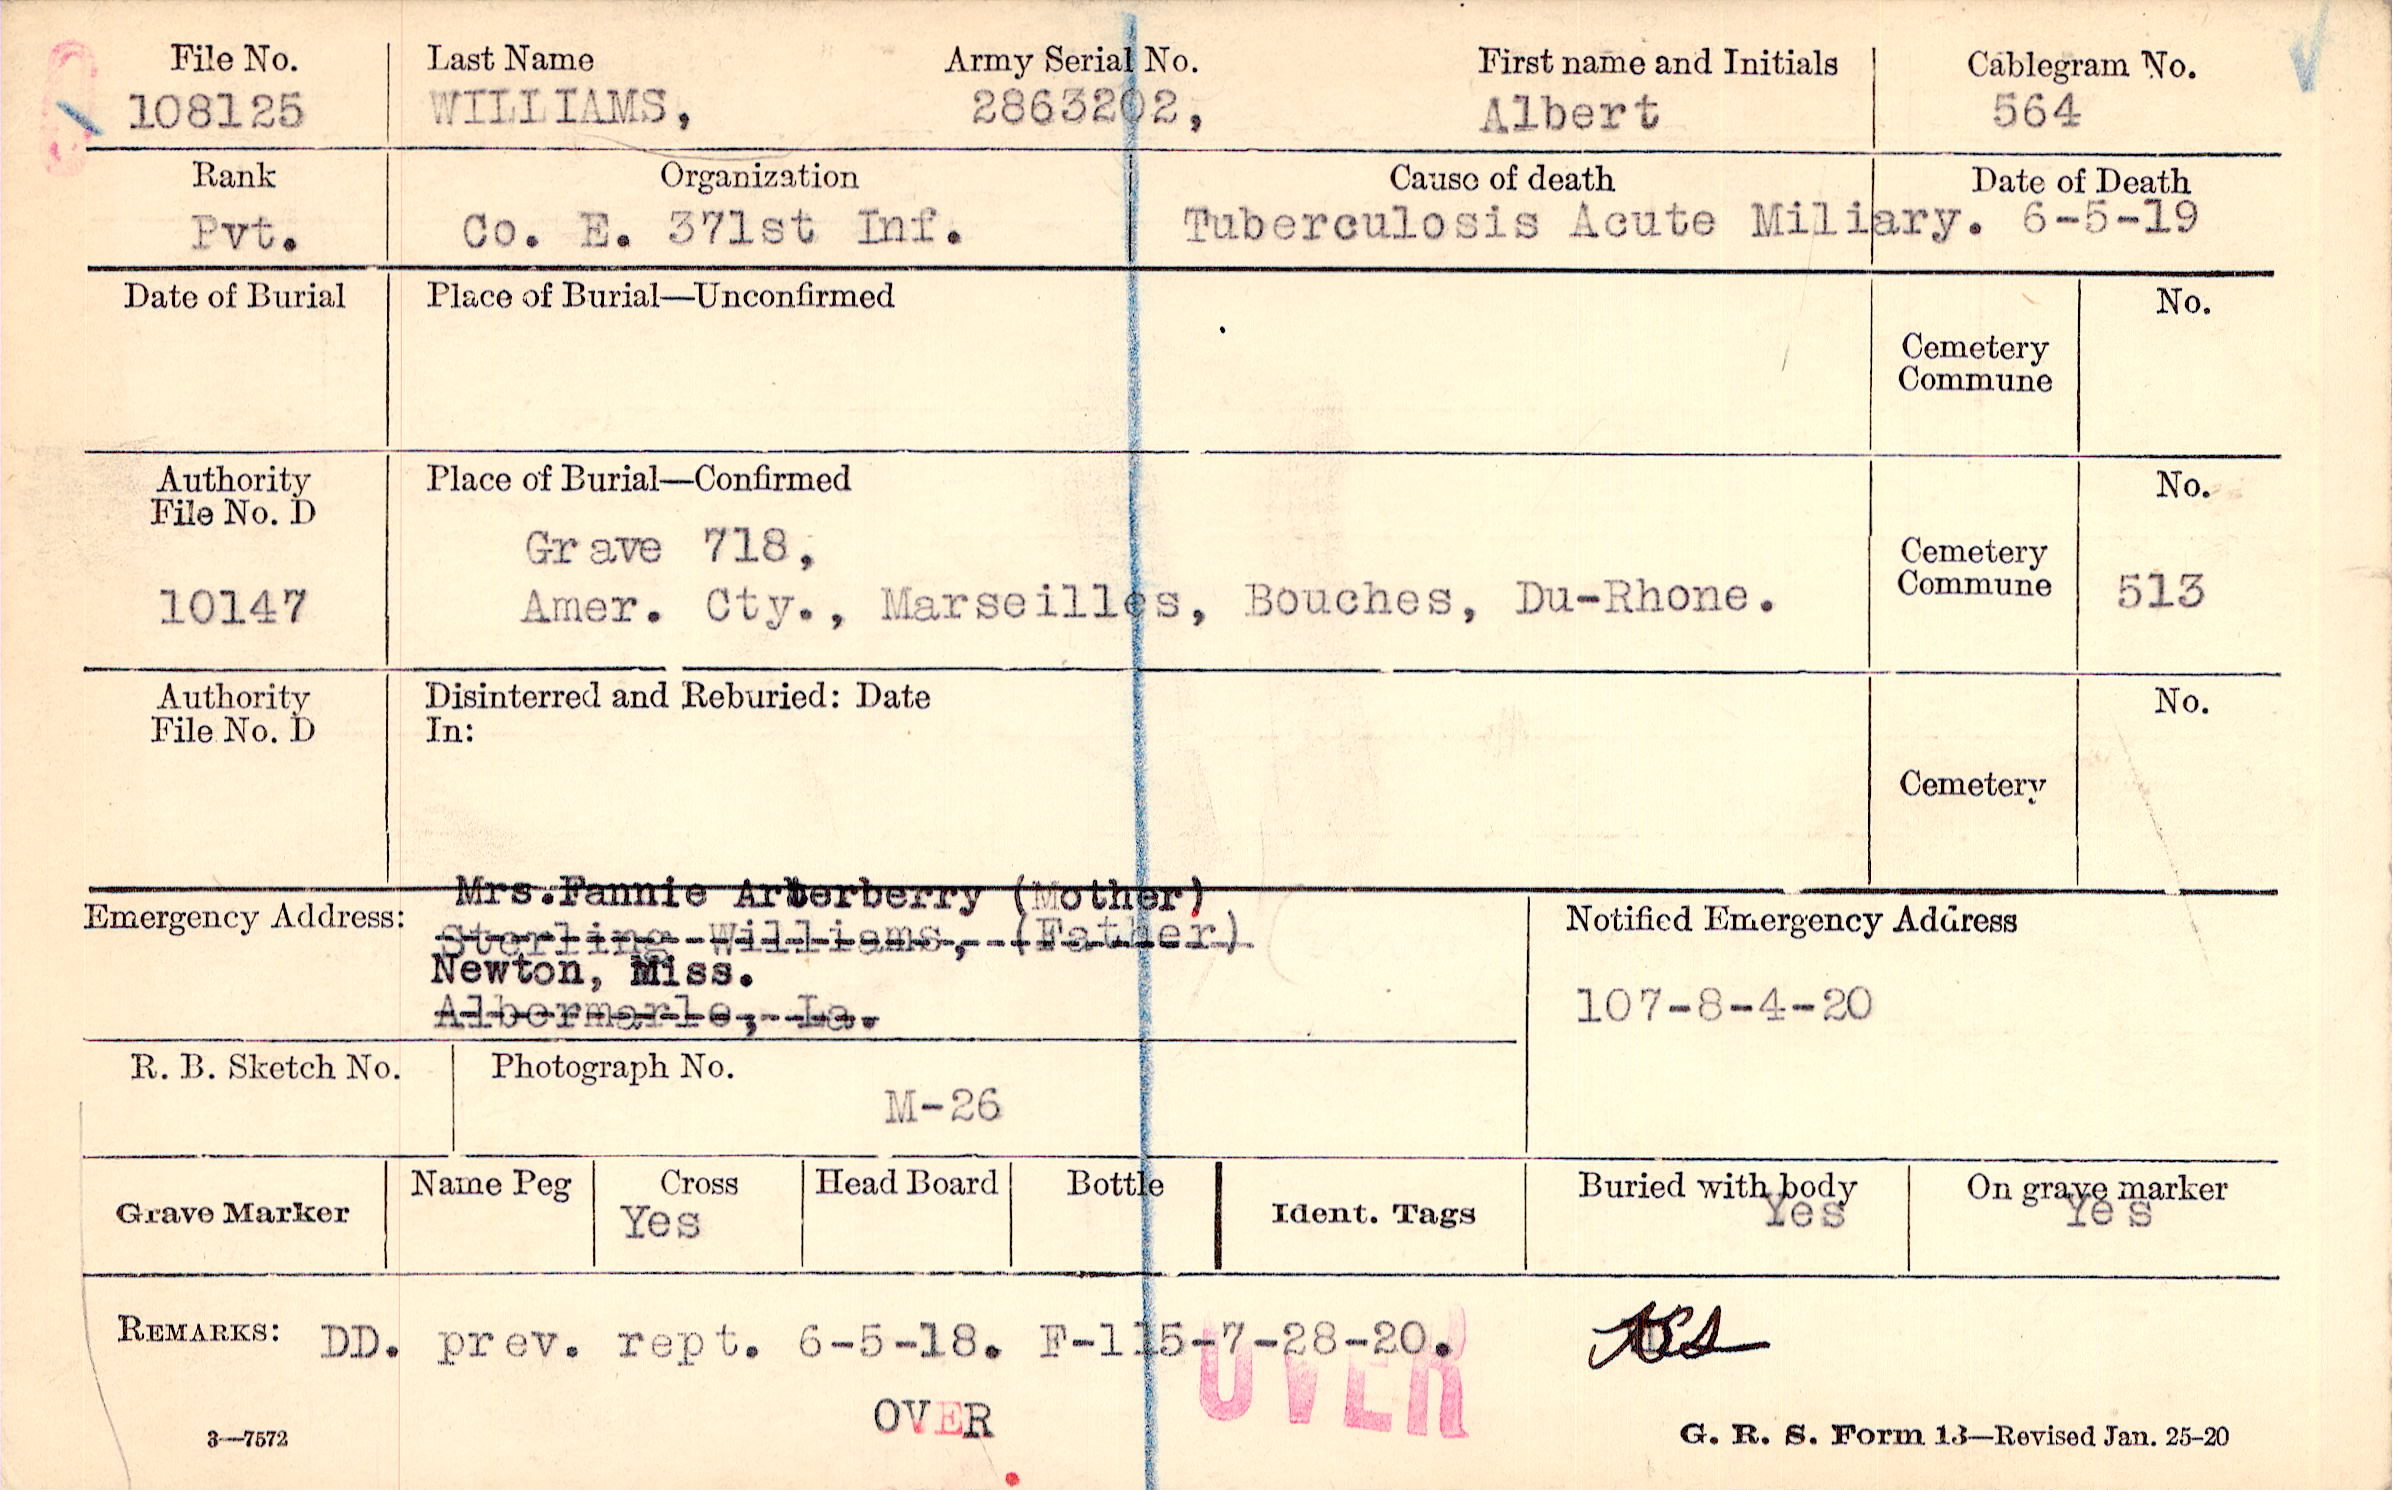 File No. Last Name Army Serial No. First name and Initials Cablegram No.
108125 WILLIAMS, 2863202, Albert 564
Rank Organization Cause of death Date of Death
Pvt. Co. E. 371st Inf. Tuberculosis Acute Miliary. 6-5-19
Date of Burial Place of Burial—Unconfirmed No.
Cemetery
Commune
Authority Place of Burial—Confirmed No.
File No. D
Grave 718,
Cemetery
Commune
10147 Amer. Cty., Marseilles, Bouches, Du-Rhone. 513
Authority Disinterred and Reburied: Date No.
File No. D In:
Cemetery
Mrs.Fannie Arterberry (Mother)
Emergency Address: Notified Emergency Address
Sterling Williams, (Father)
Newton, Miss.
Albermarle, La.
107-8-4-20
R. B. Sketch No. Photograph No.
M-26
Grave Marker Name Peg Cross Head Board Bottle Ident. Tags Buried with body On grave marker
Yes Yes Yes
REMARKS: DD. prev. rept. 6-5-18. F-115-7-28-20.
OVER OVER
3—7572 G. R. S. Form 13—Revised Jan. 25-20